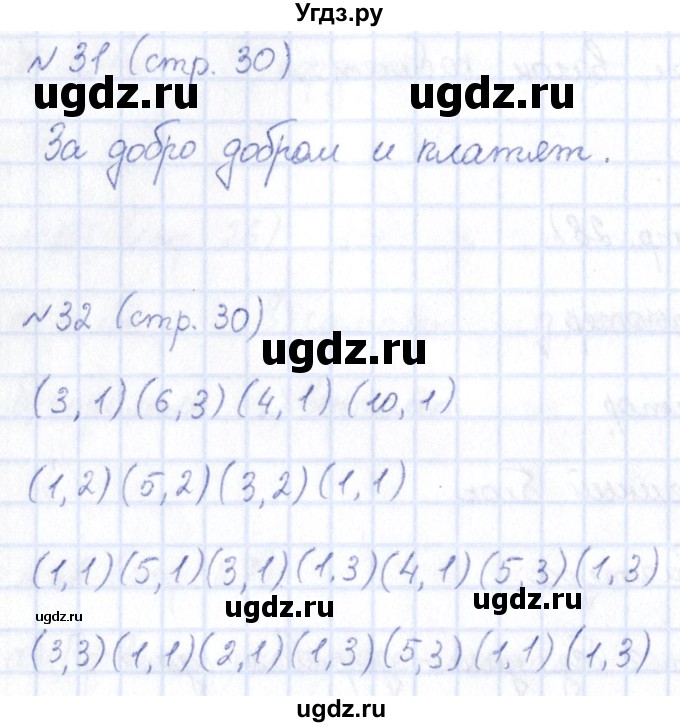 Угдз.ру
№ 31 (стр. 30)
ugdz.ru ugdz.ru
За добро добром и платят.
№ 32 (стр. 30)
ugdz.ru
(3,1) (6,3) (4,1) (10,1)
(1,2) (5,2) (3,2) (1,1)
(1,1) (5,1) (3,1) (1.3) (4,1) (5,3) (1,3)
ugdz.ru ugdz.ru ugdz.ru
(3,3) (1,1) (2,1) (1,3) (5,3) (1,1) (1,3)
ugdz.ru